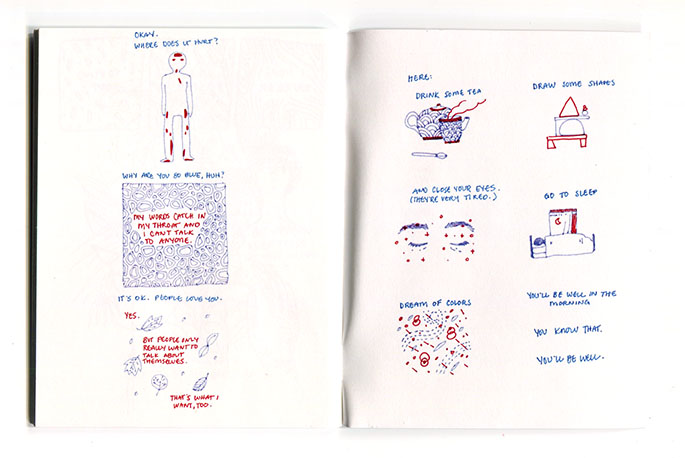 OKAY.
WHERE DOES IT HURT?
WHY ARE YOU SO BLUE, HUH?
MY WORDS CATCH IN
MY THROAT AND
I CAN'T TALK
TO ANYONE.
IT'S OK. PEOPLE LOVE YOU.
YES.
BUT PEOPLE ONLY
REALLY WANT TO
TALK ABOUT
THEMSELVES.
THAT'S WHAT I
WANT, TOO.
HERE:
DRINK SOME TEA
DRAW SOME SHAPES
AND CLOSE YOUR EYES.
(THEY'RE VERY TIRED.)
GO TO SLEEP
DREAM OF COLORS
YOU'LL BE WELL IN THE
MORNING
YOU KNOW THAT.
YOU'LL BE WELL.